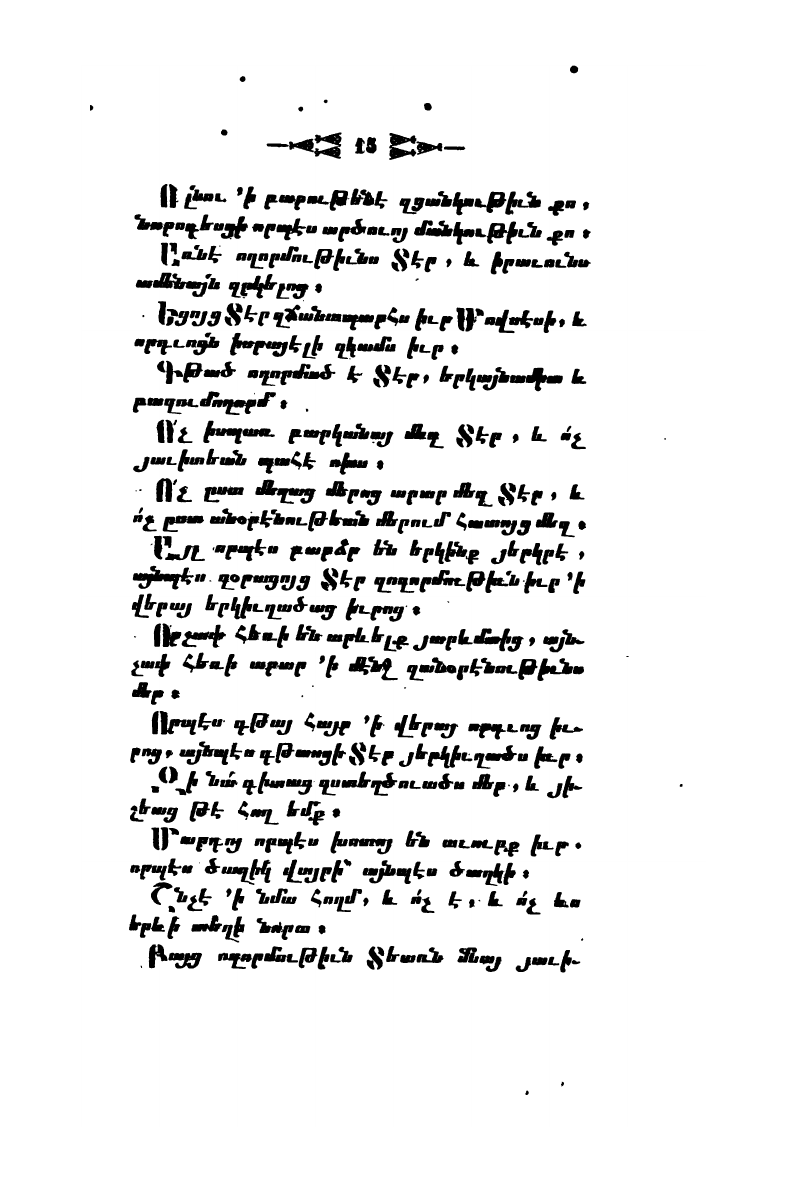 15
Ո լնու ՚ի բարութենէ զցանկութիւն քո ,
նորոգեսցի որպէս արծուոյ մանկութիւն քո ։
Առնէ ողորմութիւնս Տէր , և իրաւունս
ամենայն զրկելոց ։
Եցոյց Տէր զճանապարհս իւր Մովսէսի , և
որդւոցն Իսրայէլի զկամս իւր ։
Գթած ողորմած է Տէր , երկայնամիտ և
բազումողորմ ։
Ո՛չ իսպառ բարկանայ մեզ Տէր , և ո՛չ
յաւիտեան պահէ ոխս ։
Ո՛չ ըստ մեղաց մերոց արար մեզ Տէր , և
ո՛չ ըստ անօրէնութեան մերում հատոյց մեզ ։
Այլ որպէս բարձր են երկինք յերկրէ ,
այնպէս զօրացոյց Տէր զողորմութիւն իւր ՚ի
վերայ երկիւղածաց իւրոց ։
Որչափ հեռի են արևելք յարևմտից , այն֊
չափ հեռի արար ՚ի մէնջ զանօրէնութիւնս
մեր ։
Որպէս գթայ հայր ՚ի վերայ որդւոց իւ֊
րոց , այնպէս գթասցի Տէր յերկիւղածս իւր ։
Զի նա՛ գիտաց զստեղծուածս մեր , և յի֊
շեաց թէ հող եմք ։
Մարդոյ որպէս խոտոյ են աւուրք իւր .
որպէս ծաղիկ վայրի՝ այնպէս ծաղկի ։
Շնչէ ՚ի նմա հողմ , և ո՛չ է , և ո՛չ ևս
երևի տեղի նորա ։
Բայց ողորմութիւն Տեառն մնայ յաւի֊